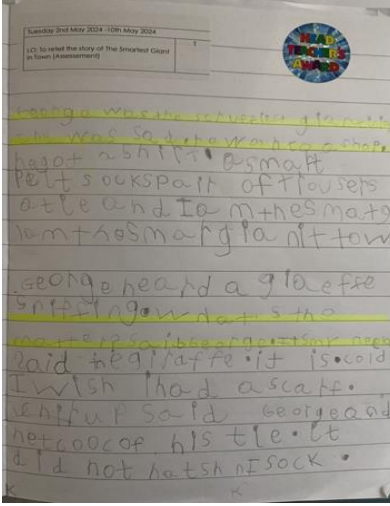 Tuesday 2nd May 2024 -10th May 2024
LO: To retell the story of The Smartest Giant
in Town (Assessment)
1
HEAD
TEACHER'S
AWARD
George was the scruffiest
was sad he to a shop
he got a shirt a smart
belt sockspair of trousers
a tie and Ia mthesmat
Iamthesmar gia nit tow
George heard a giaeffe
sniffing what s the
mattere said george
said the giraffe. it is. cold
I wish Ihad ascarf.
said George and
his tie. it
did not hatsh nI sock.